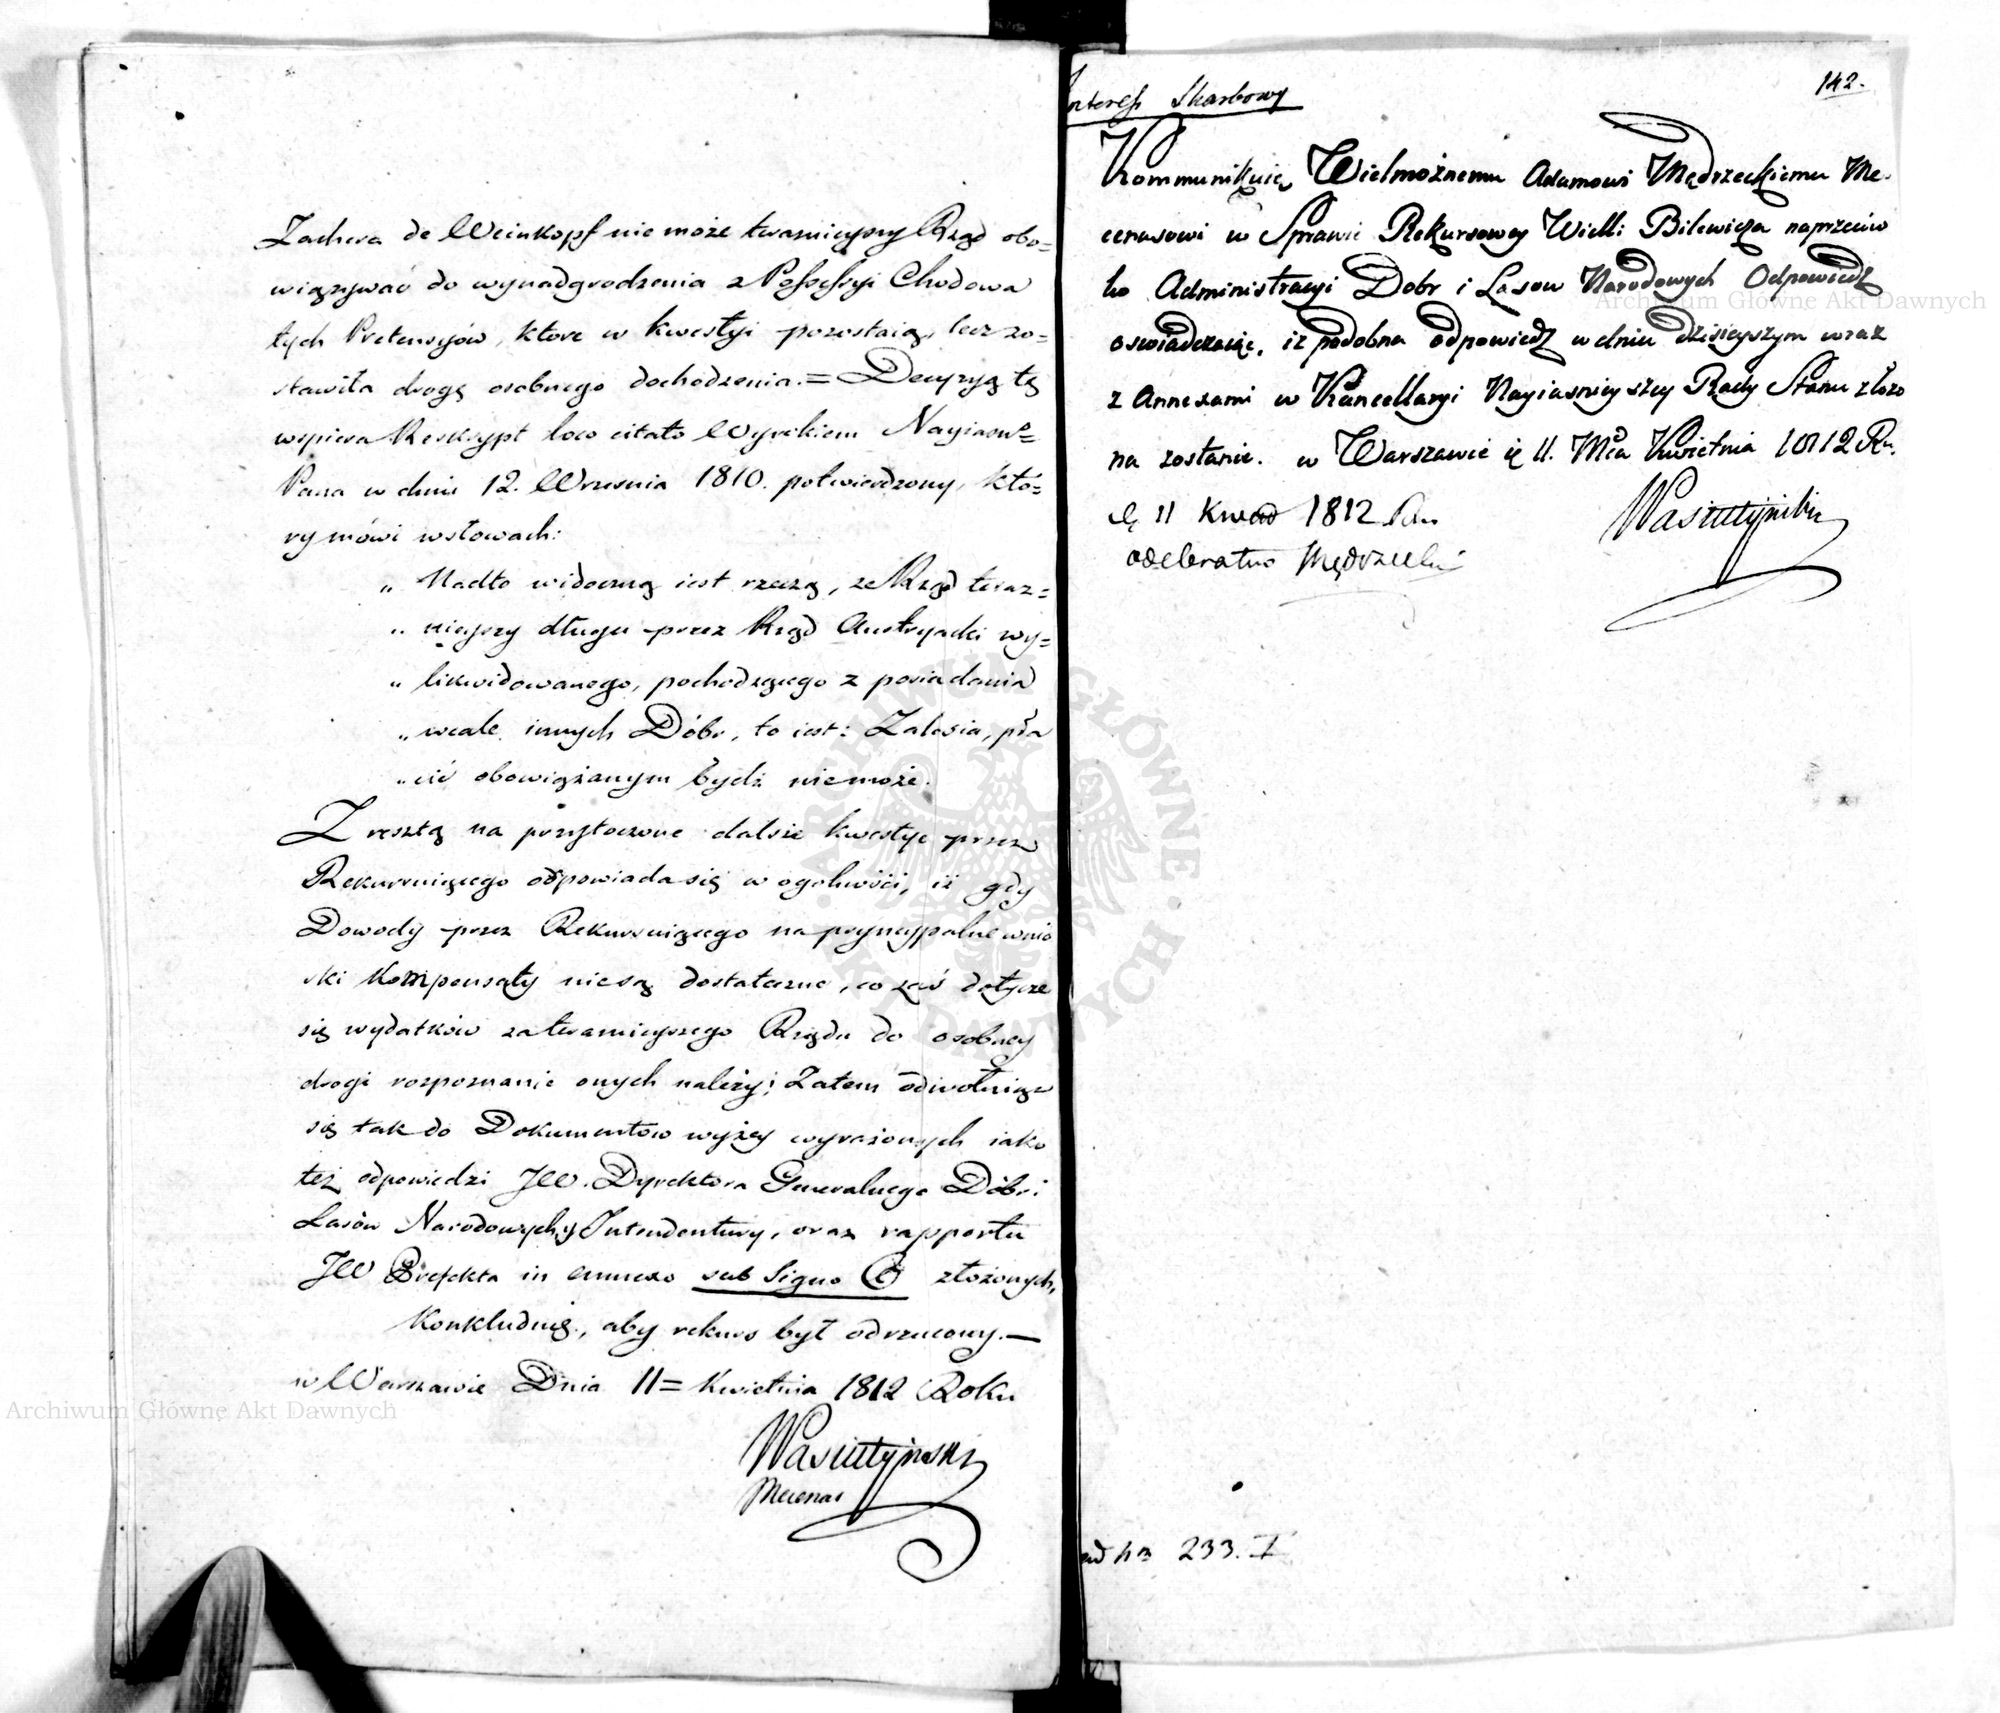 Zachera de Weinkopf nie może teraznieyszy Rząd obo=
wiązywać do wynadgrodzenia z Possessyi Chodowa
tych Pretensyów, ktore w kwestyi pozostaią, lecz zo=
stawiła drogę osobnego dochodzenia.= Decyzyą tę
wspiera Reskrypt loco citato Wyrokiem Nayiasn=
Pana w dniu 12. Wrzesnia 1810. potwierdzony, któ=
ry mówi w słowach:
„ Nadto widoczną iest rzeczą, ze Rząd teraz=
„ nieyszy długu przez Rząd Austryacki wy=
„ likwidowanego, pochodzącego z posiadania
„ wcale innych Dóbr, to iest: Zalesia, pła
„ cić obowiązanym bydź niemoże.
Z resztą na przytoczone dalsze kwestye przez
Rekurruiącego odpowiada się w ogolności, iż gdy
Dowody przez Rekurruiącego na pryncypalne wnio
ski Kompensaty nie są dostateczne, co zaś dotycze
się wydatków za teraznieyszego Rządu do osobney
drogi rozpoznanie onych należy; Zatem odwołuiąc
się tak do Dokumentow wyżey wyrażonych iako
też odpowiedzi JW. Dyrektora Generalnego Dóbr i
Lasów Narodowych, Intendentury, oraz rapportu
JW Prefekta in annexo sub Signo C złożonych,
Konkluduię, aby rekurs był odrzucony.—
w Warszawie Dnia 11= Kwietnia 1812 Roku
Wasiutyński
Mecenas
142.
Interess Skarbowy
Kommunikuię Wielmożnemu Adamowi Mędrzeckiemu Me-
cenasowi w Sprawie Rekursowey Wielli Bilewicza naprzeciw
ko Administracyi Dobr i Lasow Narodowych Odpowiedź
oswiadczaiąc, iż podobna odpowiedź w dniu dzisieyszym wraz
z Annexami w Kancellaryi Nayiasnieyszey Rady Stanu złożo
na zostanie. w Warszawie d. 11. Mca Kwietnia 1812 R.
Wasiutyński
d. 11 Kwiet 1812
odebrałem Mędrzecki
ad № 233. I
Archiwum Główne Akt Dawnych
Archiwum Główne Akt Dawnych
ARCHIWUM GŁÓWNE AKT DAWNYCH